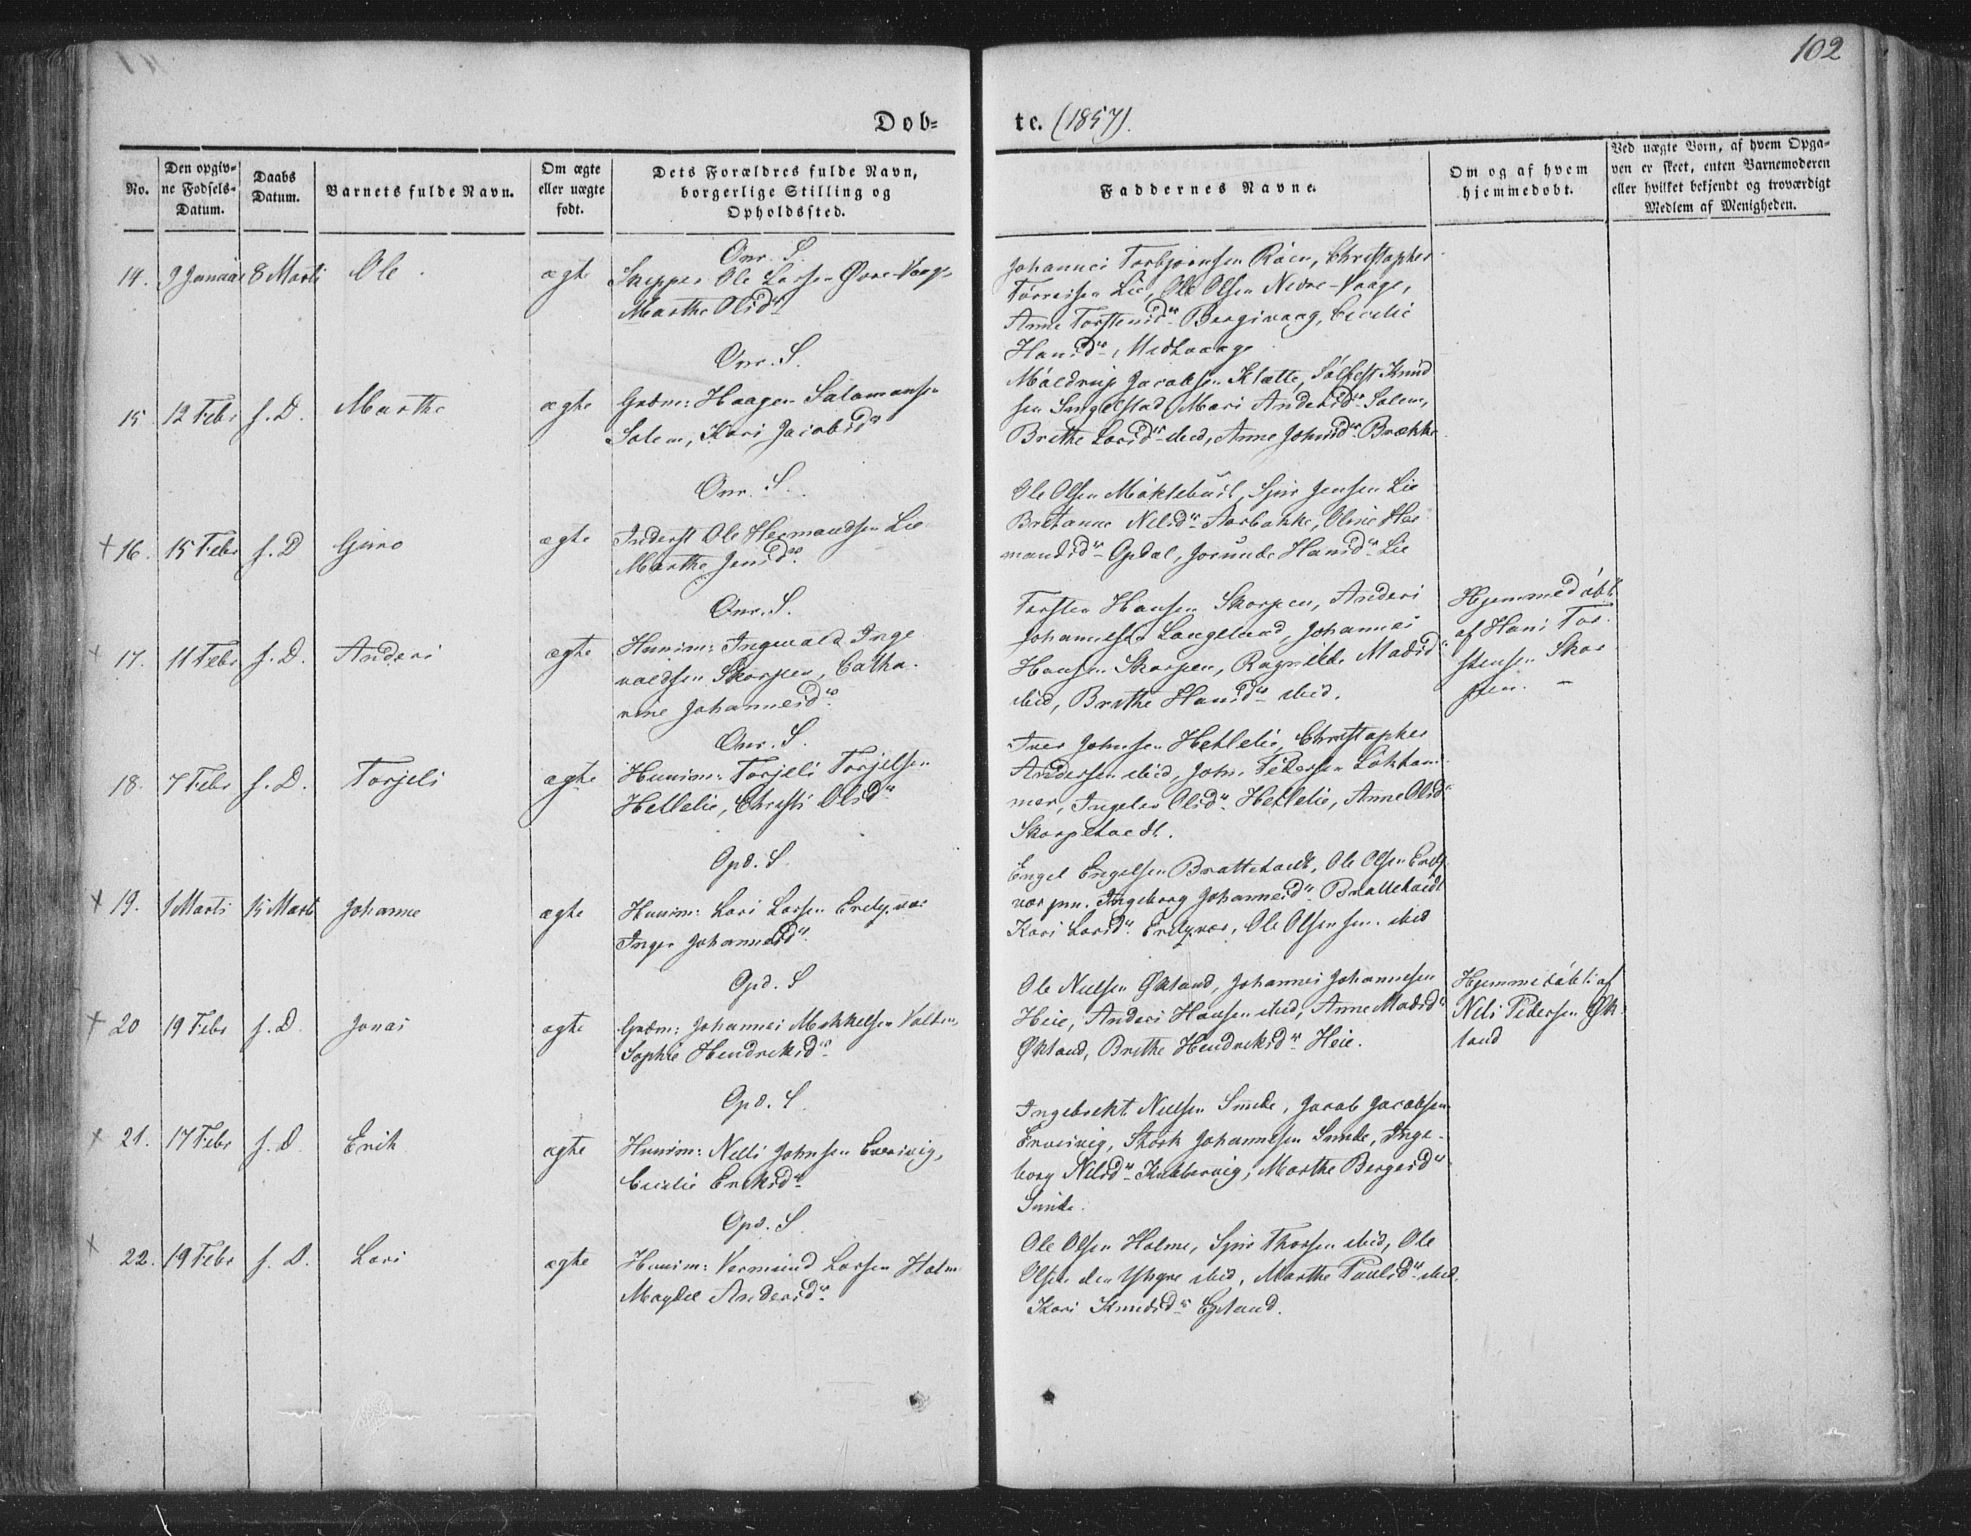 102
Døb-
te. (1857).
No.
Den opgiv-
ne Fødsels-
Datum.
Daabs
Datum.
Barnets fulde Navn.
Om ægte
eller uægte
født.
Dets Forældres fulde Navn,
borgerlige Stilling og
Opholdssted.
Faddernes Navne.
Om og af hvem
hjemmedøbt.
Ved uægte Børn, af hvem Opga-
ven er skeet, enten Barnemoderen
eller hvilket bekjendt og troværdigt
Medlem af Menigheden.
14. 9 Januar 8 Marti Ole ægte
Onr. S.
Skipper Ole Larsen Øvre-Vaage
Marthe Olsdr
Johannes Torbjørnsen Røen, Christopher
Tørresen Lie, Ole Olsen Nedre-Vaage,
Anne Torstensdr Bergsvaag, Cecilie
Hansdr, Midtvaage
15 12 Febr s. D. Marthe ægte
Onr. S.
Grdm: Haagen Salamonsen
Solem, Kari Jacobsdr
Maldrup Jacobsen Klætte, Solfest Knud
sen Mari Andersdr Solem,
Brithe Larsdr ibid, Anne Johnsdr Brække
+ 16. 15 Febr s. D Guro ægte
Onr. S.
Inderst Ole Hermandsen Lie
Marthe Jensdr
Ole Olsen Møklebust, Sjur Jensen Lie
Britanne Nilsdr Aarbakke, Oline Her
mandsdr Opdal, Jorunde Hansdr Lie
+ 17. 11 Febr s. D. Anders ægte
Onr. S.
Huusm: Ingvald Inge
valdsen Skorpen, Catha-
rine Johannesdr
Torsten Hansen Skorpen, Anders
Johannesen Langeland, Johannes
Hansen Skorpen, Ragnilde Madsdr
ibid, Brithe Hansdr ibid.
Hjemmedøbt
af Hans Tor
stensen Skor
pen. –
18. 7 Febr s. D. Torjels ægte
Onr. S.
Huusm: Torjels Torjelsen
Hellelie, Christi Olsdr
Iver Johnsen Hellelie, Christopher
Andersen ibid, John Pedersen Løkham
mer, Ingelev Olsdr Hellelie, Anne Olsdr
Skorpetvedt.
+ 19. 1 Marti 15 Marti Johanne ægte
Opd. S.
Huusm: Lars Larsen
Inger Johannesdr
Engel Engelsen Brattetvedt, Ole Olsen
Ingeborg Johannesdr Brattetvedt
Kari Larsdr Ole Olsen sen. ibid
+ 20 19 Febr s. D. Jonas ægte
Opd. S
Grdm: Johannes Mikkelsen
Sophie Hendriksdr
Ole Nielsen Økland, Johannes Johannesen
Heie, Anders Hansen ibid, Anne Madsdr
Økland, Brithe Hendriksdr Heie.
Hjemmedøbt af
Nils Pedersen Øk-
land
+ 21. 17 Febr s. D. Erik ægte
Opd. S
Huusm: Nils Johnsen Eversvig,
Cecilie Eriksdr
Ingebrekt Nielsen Smede, Jacob Jacobsen
Eversvig, Johannesen Sunde, Inge-
borg Nilsdr Kubbervig, Marthe Bergesdr
Sunde.
+ 22. 19 Febr s. D. Lars ægte
Opd. S
Huusm: Vermund Larsen Holm
Magdel Andersdr
Ole Olsen Holme, Sjur Thorsen ibid, Ole
Olsen den Yngre ibid, Marthe Paulsdr ibid.
Kari Knudsdr Epland.